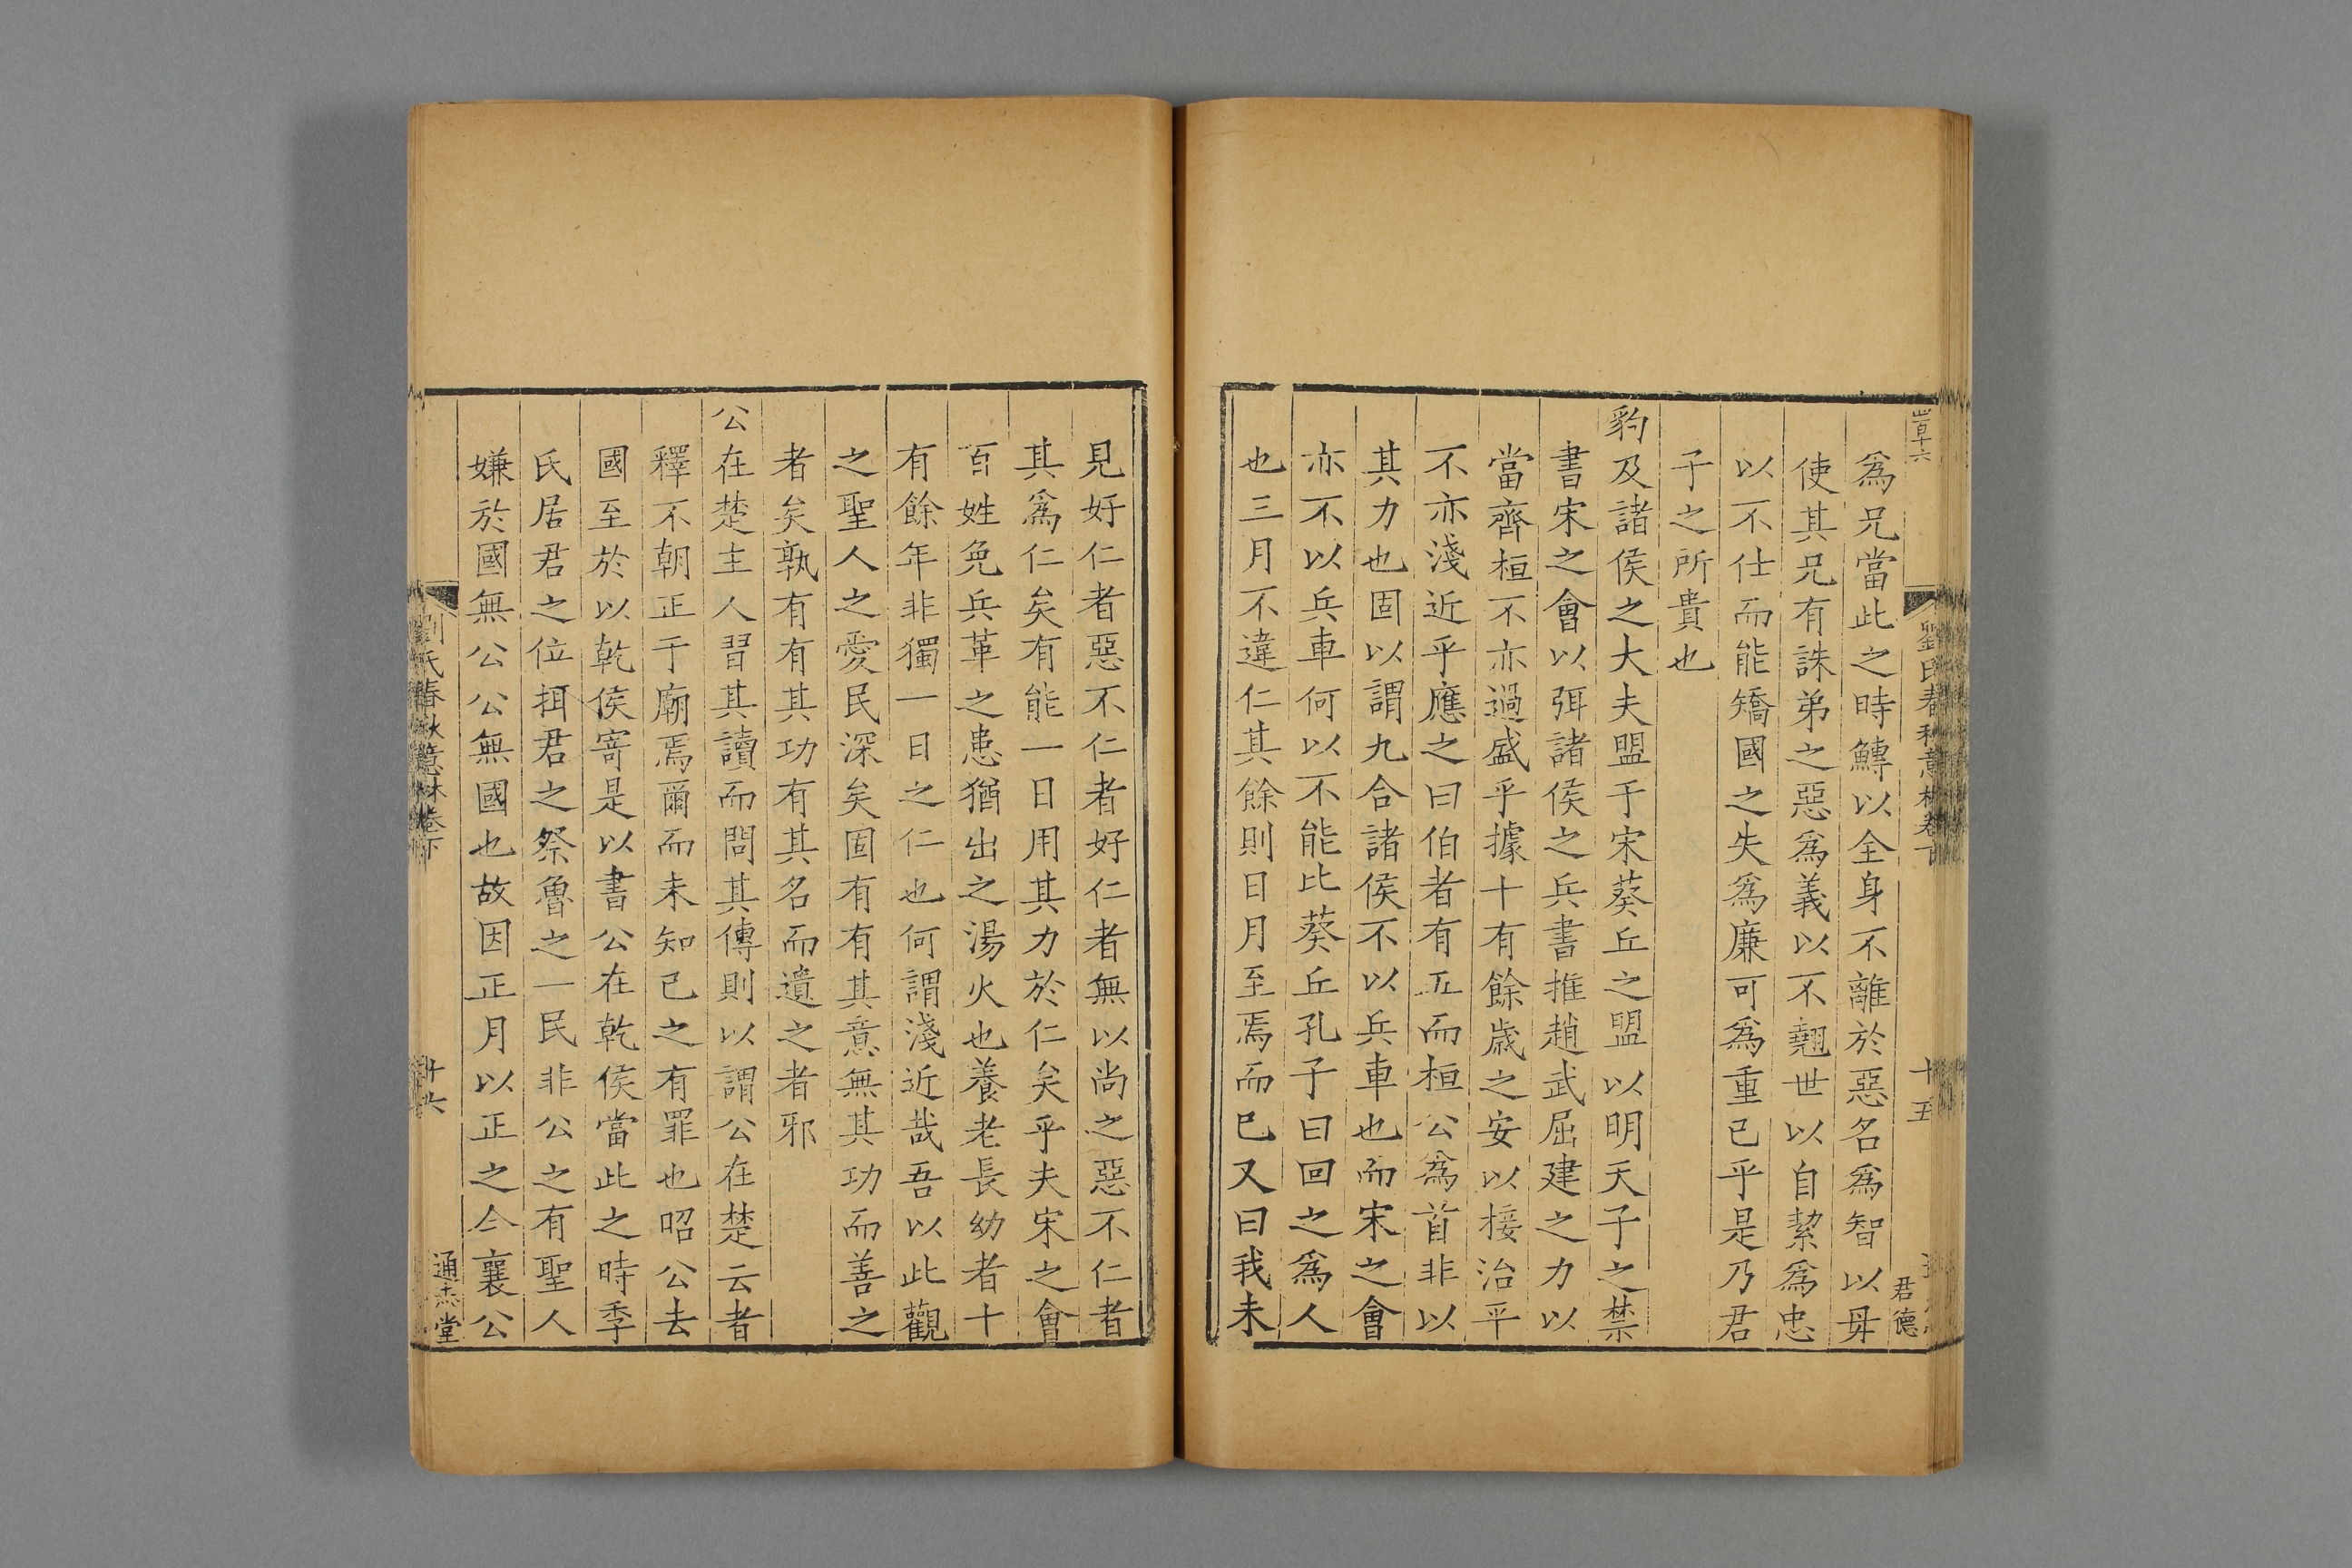 爲兄當此之時鱄以全身不離於惡名爲智以毋
使其兄有誅弟之惡爲義以不翹世以自絜爲忠
以不仕而能矯國之失爲廉可爲重已乎是乃君
子之所貴也
豹及諸侯之大夫盟于宋葵丘之盟以明天子之禁
書宋之會以弭諸侯之兵書推趙武屈建之力以
當齊桓不亦過盛乎據十有餘歲之安以接治平
不亦淺近乎應之曰伯者有五而桓公爲首非以
其力也固以謂九合諸侯不以兵車也而宋之會
亦不以兵車何以不能比葵丘孔子曰回之爲人
也三月不違仁其餘則日月至焉而已又曰我未
劉氏春秋意林卷下
十五
君德
見好仁者惡不仁者好仁者無以尚之惡不仁者
其爲仁矣有能一日用其力於仁矣乎夫宋之會
百姓免兵革之患猶出之湯火也養老長幼者十
有餘年非獨一日之仁也何謂淺近哉吾以此觀
之聖人之愛民深矣固有有其意無其功而善之
者矣孰有有其功有其名而遺之者邪
公在楚主人習其讀而問其傳則以謂公在楚云者
釋不朝正于廟焉爾而未知已之有罪也昭公去
國至於以乾侯寄是以書公在乾侯當此之時季
氏居君之位揖君之祭魯之一民非公之有聖人
嫌於國無公公無國也故因正月以正之今襄公
劉氏春秋意林卷下
十六
通志堂